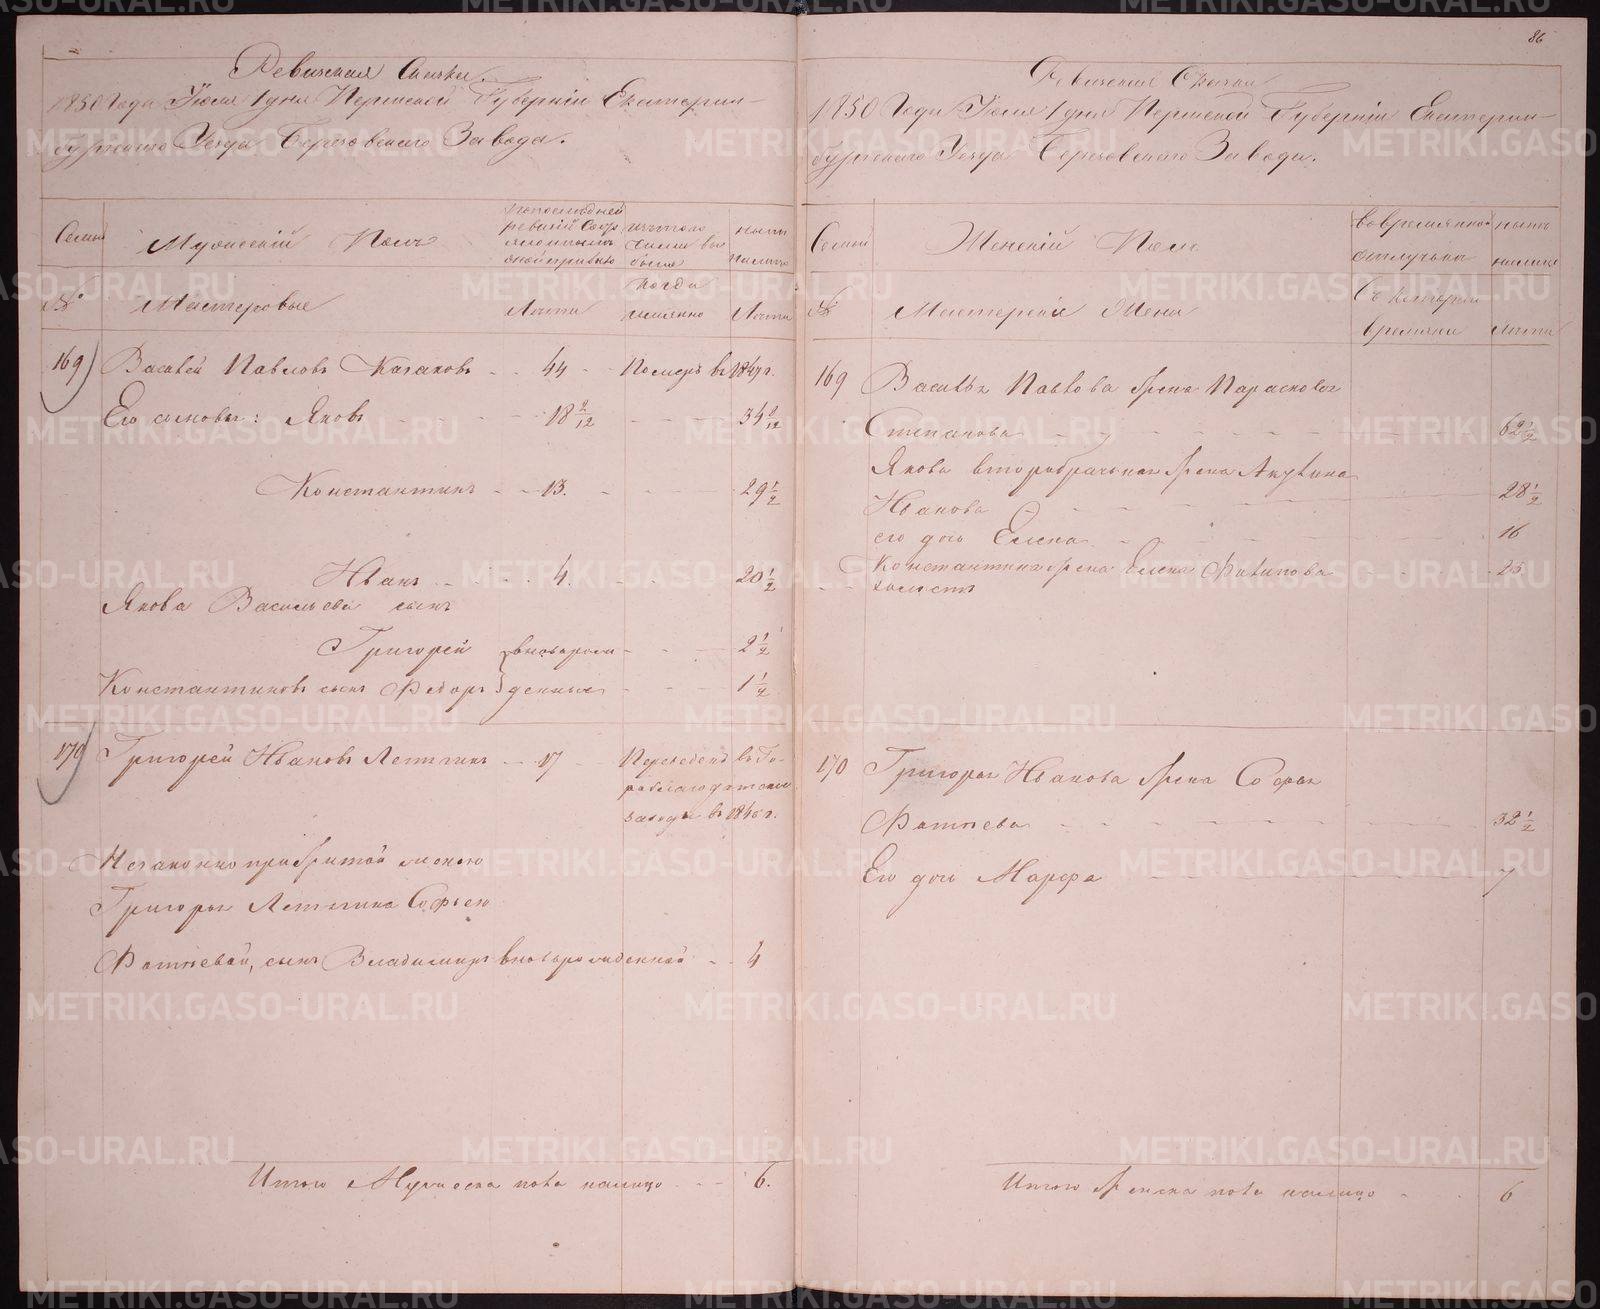 86
Ревижская Сказка.
1850 Года Июля 1 дня Пермской Губернiи Екатерин-
бургскаго Уезда Березовскаго Завода.
Семьи
Мужескiй Полъ
По последней ревизiи
изъ того числа выбыло
ныне на лицо
№
Мастеровые
Лета
когда именно
Лета
169
Василей Павловъ Казаковъ 44 Померъ въ 1847 г.
Его сыновья: Яковъ 18 2/12 34 9/12
Константинъ 13. 29 1/2
Иванъ 4. 20 1/2
Якова Васильева сынъ
Григорей вноворож- 2 1/2
Константиновъ сынъ Федоръ денные 1 1/2
170
Григорей Ивановъ Летягинъ 17 Переведенъ въ Го-
роблагодатские
заводы въ 1840 г.
Незаконно прижитой женою
Григорья Летягина Софьею
Фатѣевой, сынъ Владимиръ вноворожденной 4
Итого Мужеска пола налицо 6.
Ревижская Сказка
1850 Года Июля 1 дня Пермской Губернiи Екатерин-
бургскаго Уезда Березовскаго Завода.
Семьи
Женскiй Полъ
во временной отлучке
ныне налице
№
Мастерскiя Жены
Съ котораго времяни
Лета
169 Василья Павлова жена Парасковья
Степанова 62 1/2
Якова второбрачная жена Акулина
Иванова 28 1/2
его дочь Елена 16
Константина жена Елена Филипова 25
холостъ
170 Григорья Иванова жена Софья
Фатѣева 32 1/2
Его дочь Марфа 7
Итого женска пола налицо 6
METRIKI.GASO-URAL.RU